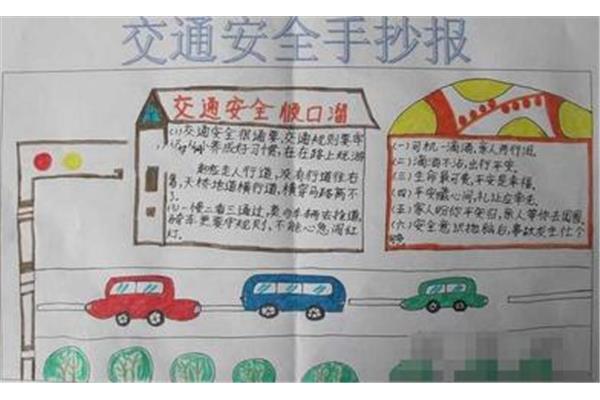 交通安全手抄报
交通安全顺口溜
(1)交通安全很通要,交通规则要牢
从小养成好习惯,在在路上规游
走人行道,没有行道往右
天桥地道横行道,横穿马路离不
了。
(2)一慢二看三通过,莫与车辆去抢道
骑车更要守规则,不能心急闯红
灯。
(一)司机一滴酒,家人两行泪。
(二)滴酒不沾,出行平安。
(三)生命最可贵,平安是幸福。
(四)平安藏心间,礼让应率先。
(五)家人盼你平安归,亲人等你去团圆。
(六)安全意识抛脑后,事故发生仕个